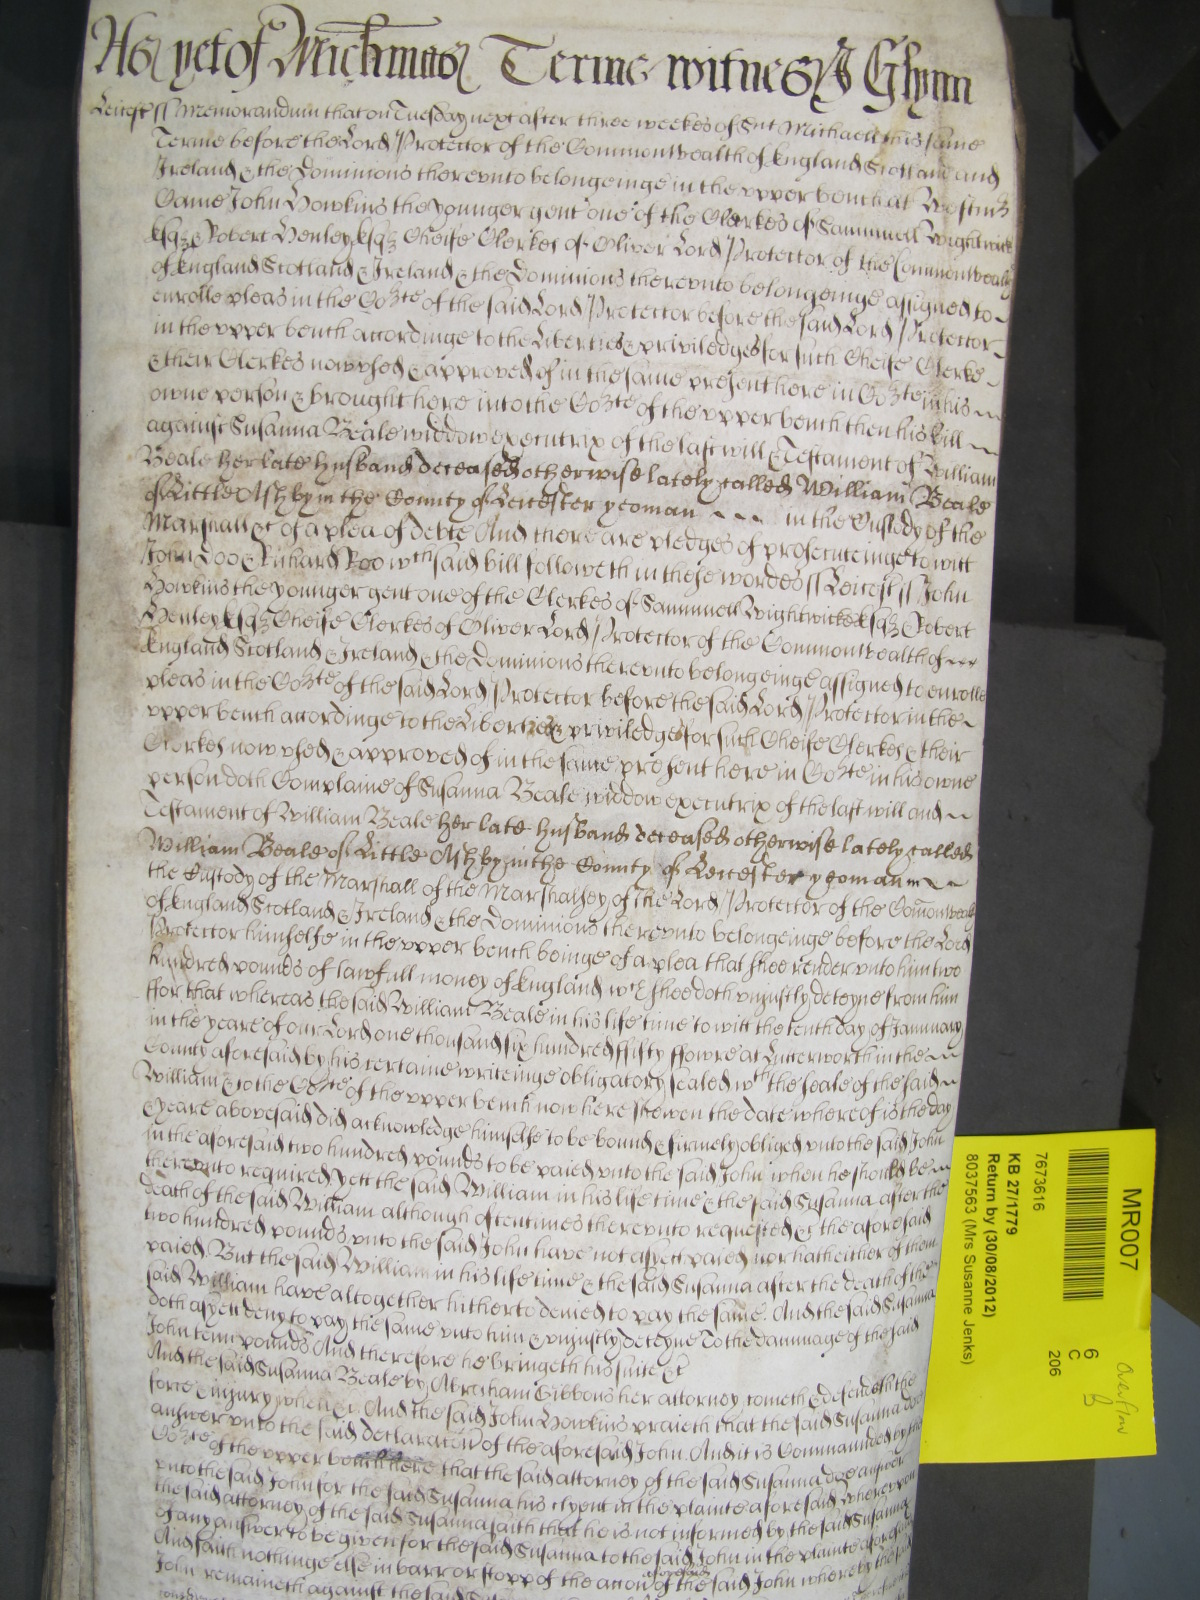 As yet of Michmas Terme witnes J Glynn
Leicest ss Memorandum that on Tuesday next after three weekes of Snt Michaell this same
Terme before the Lord Protector of the Commonwealth of England Scotland and
Ireland & the Dominions thereunto belongeinge in the upper bench at Westmr
Came John Howkins the younger gent one of the Clerkes of Sammuell Wightwick
Esqr & Robert Henley Esqr Cheife Clerkes of Oliver Lord Protector of the Commonwealth
of England Scotland & Ireland & the Dominions thereunto belongeinge assigned to
enrolle pleas in the Corte of the said Lord Protector before the said Lord Protector
in the upper bench accordinge to the Liberties & priviledges for such Cheife Clerke
& their Clerkes now used & approved of in the same present here in Corte in his
owne person & brought here into the Corte of the upper bench then his bill
against Susanna Beale widdow executrix of the last will & Testament of William
Beale her late husband deceased otherwise lately called William Beale
of Little Ashby in the County of Leicester yeoman in the Custody of the
Marshall &c of a plea of debte And there are pledges of prosecuteinge to witt
John Doo & Richard Roo wch said bill followeth in these wordes ss Leicest ss John
Howkins the younger gent one of the Clerkes of Sammuell Wightwicke Esqr & Robert
Henley Esqr Cheife Clerkes of Oliver Lord Protector of the Commonwealth of
England Scotland & Ireland & the Dominions thereunto belongeinge assigned to enrolle
pleas in the Corte of the said Lord Protector before the said Lord Protector in the
upper bench accordinge to the Liberties & priviledges for such Cheife Clerkes & their
Clerkes now used & approved of in the same present here in Corte in his owne
person doth Complaine of Susanna Beale widdow executrix of the last will and
Testament of William Beale her late husband deceased otherwise lately called
William Beale of Little Ashby in the County of Leicester yeoman in
the Custody of the Marshall of the Marshalsey of the Lord Protector of the Comonwealth
of England Scotland & Ireland & the Dominions thereunto belongeinge before the Lord
Protector himselfe in the upper bench beinge of a plea that shee render unto him two
hundred pounds of lawfull money of England wch shee doth unjustly deteyne from him
ffor that whereas the said William Beale in his life time to witt the tenth day of January
in the yeare of our Lord one thousand six hundred ffifty ffowre at Lutterworth in the
County aforesaid by his certaine writeinge obligatory sealed wth the seale of the said
William & to the Corte of the upper bench now here shewen the date whereof is the day
& yeare abovesaid did acknowledge himselfe to be bound & firmely obliged unto the said John
in the aforesaid two hundred pounds to be paied unto the said John when he should be
thereunto required yett the said William in his life time & the said Susanna after the
death of the said William although oftentimes thereunto requested & the aforesaid
two hundred pounds unto the said John have not as yett paied nor hath either of them
paied. But the said William in his life time & the said Susanna after the death of the
said William have altogether hitherto denied to pay the same. And the said Susanna
doth as yett deny to pay the same unto him & unjustly deteyne To the dammage of the said
John tenn pounds And therefore he bringeth his suite &c
And the said Susanna Beale by Abraham Gibbons her attorney cometh & defendeth the
force & injury when &c. And the said John Howkins praieth that the said Susanna doe
answer unto the said declaracon of the aforesaid John. And it is Commaunded by the
Corte of the upper bench here that the said attorney of the said Susanna doe answer
unto the said John for the said Susanna his clyent in the plainte aforesaid whereupon
the said attorney of the said Susanna saith that he is not informed by the said Susanna
of any answer to be given for the said Susanna to the said John in the plainte aforesaid
And saith nothinge else in barr or stopp of the accon aforesaid of the said John whereby the said
John remaineth against the said
MR007
6
C
206
Overflow
B
7673616
KB 27/1779
Return by (30/08/2012)
8037563 (Mrs Susanne Jenks)